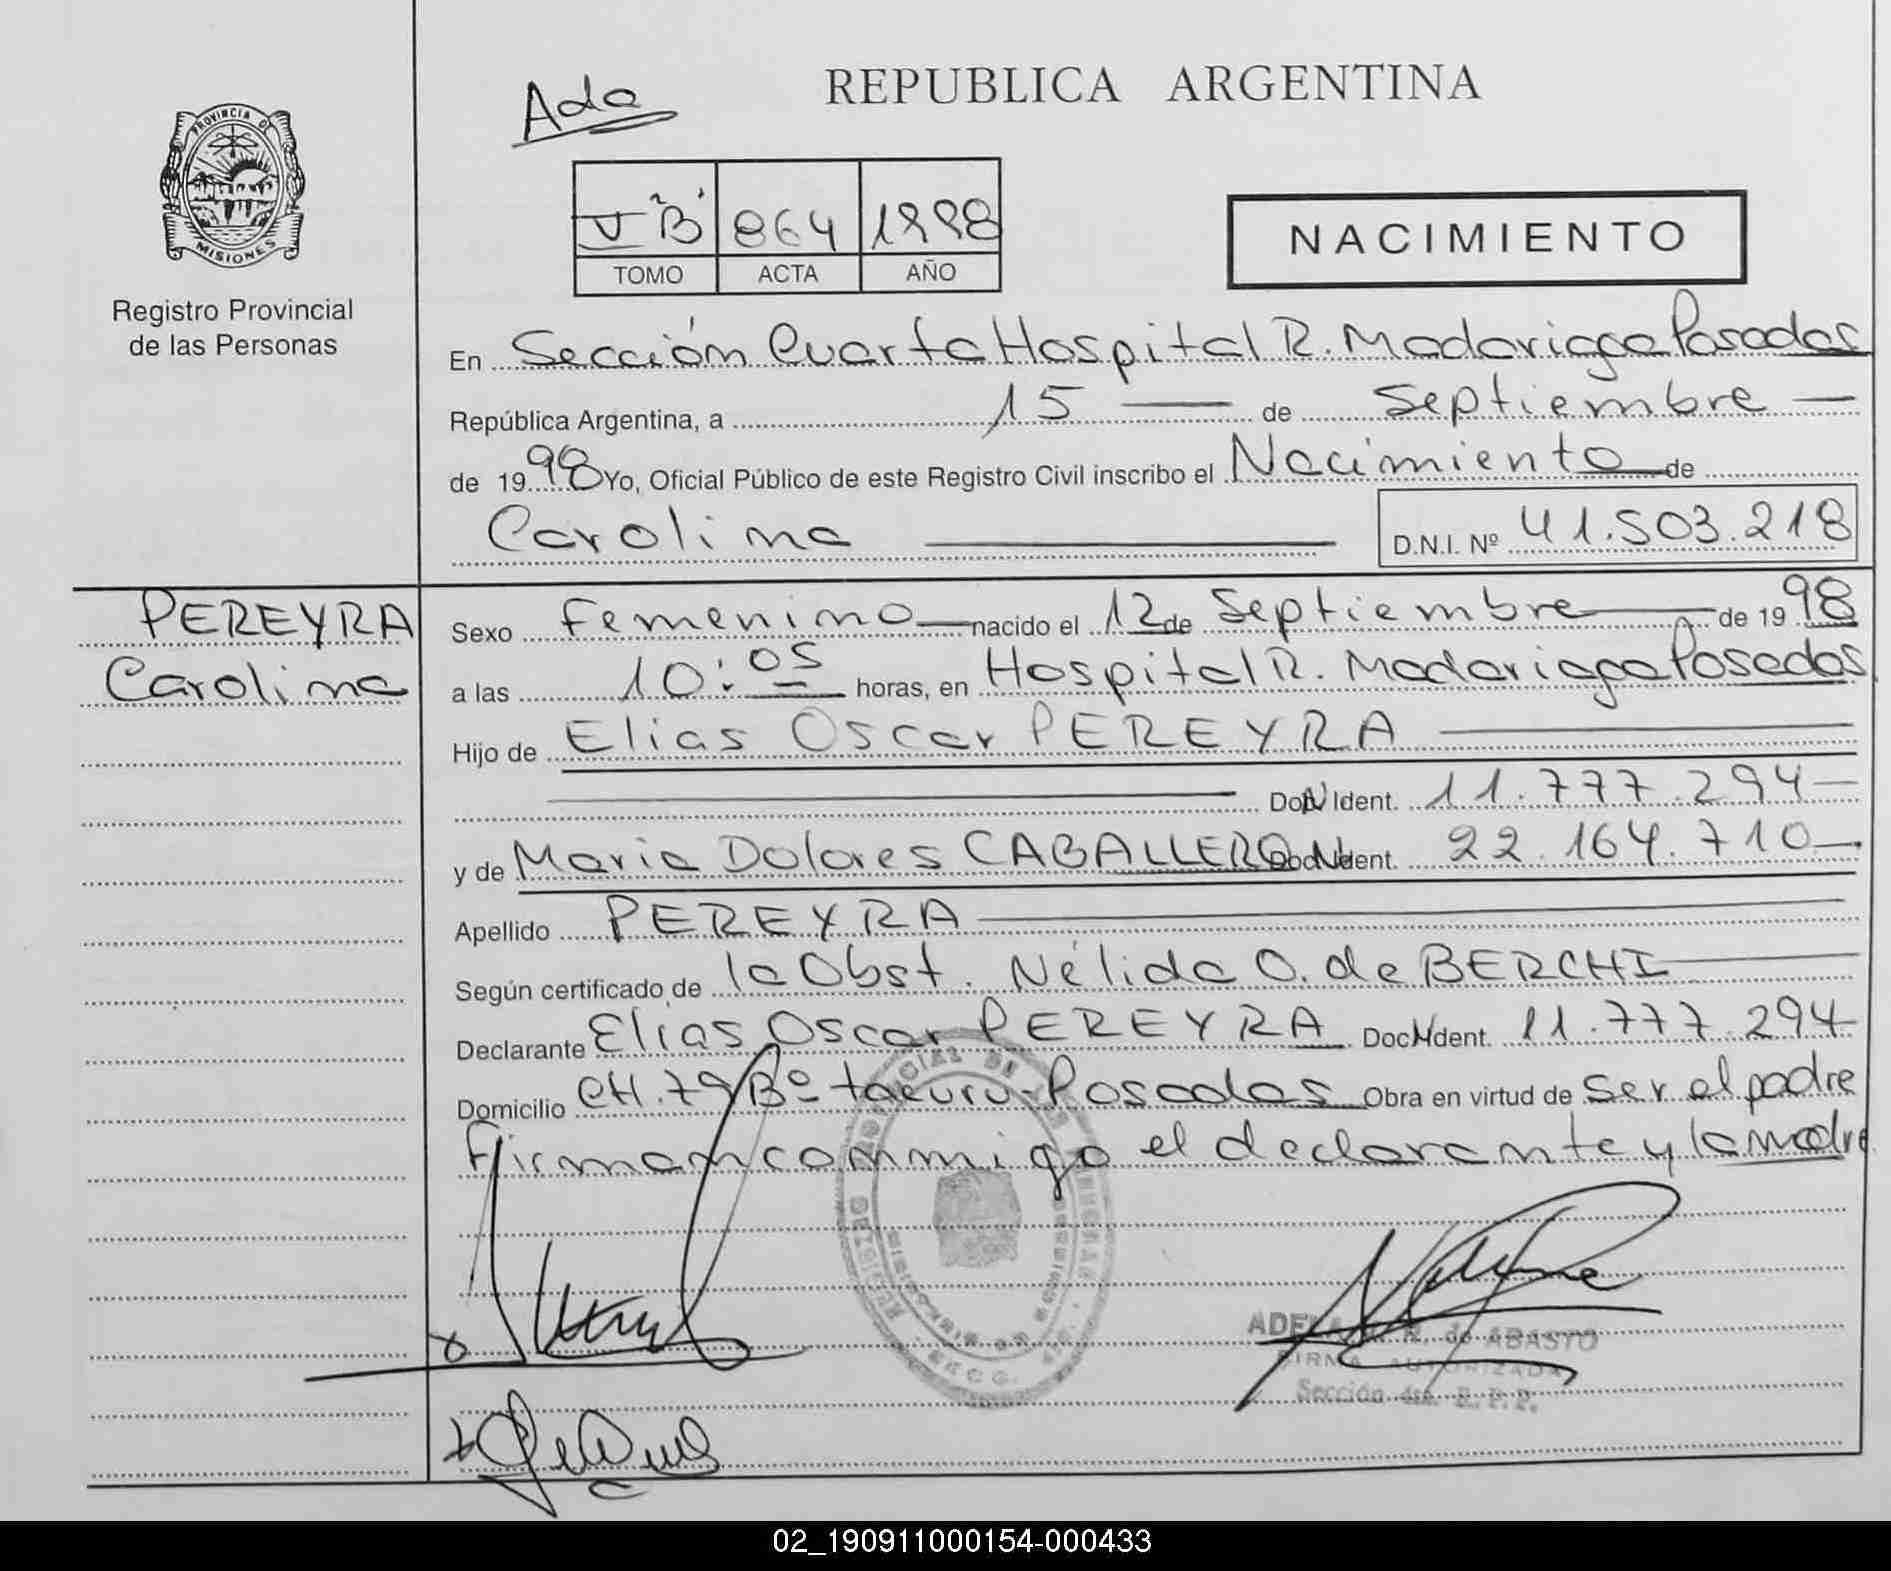 REPUBLICA ARGENTINA
Ada
PROVINCIA DE
MISIONES
V "B" 864 1998
TOMO ACTA AÑO
NACIMIENTO
Registro Provincial
de las Personas
En Sección Cuarta Hospital R. Madariaga Posadas
República Argentina, a 15 de Septiembre
de 1998 Yo, Oficial Público de este Registro Civil inscribo el Nacimiento de
Carolina D.N.I. Nº 41.503.218
PEREYRA
Carolina
Sexo Femenino nacido el 12 de Septiembre de 1998
a las 10:05 horas, en Hospital R. Madariaga Posadas
Hijo de Elias Oscar PEREYRA
Ident. 11.777.294
y de Maria Dolores CABALLERO Ident. 22.164.710
Apellido PEREYRA
Según certificado de la Obst. Nélida O. de BERCHI
Declarante Elias Oscar PEREYRA Ident. 11.777.294
Domicilio CH.79 Bº tacuru-Posadas Obra en virtud de Ser el padre
Firman conmigo el declarante y la madre
R. de ABASTO
FIRMA AUTORIZADA
Sección 4ta. R.P.P.
02_190911000154-000433